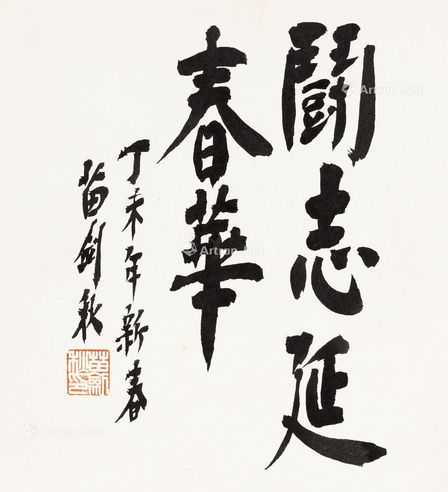 鬪志延
春華
丁未年新春
苗劍秋
Artron.Net
Artron.Net
Artron.Net